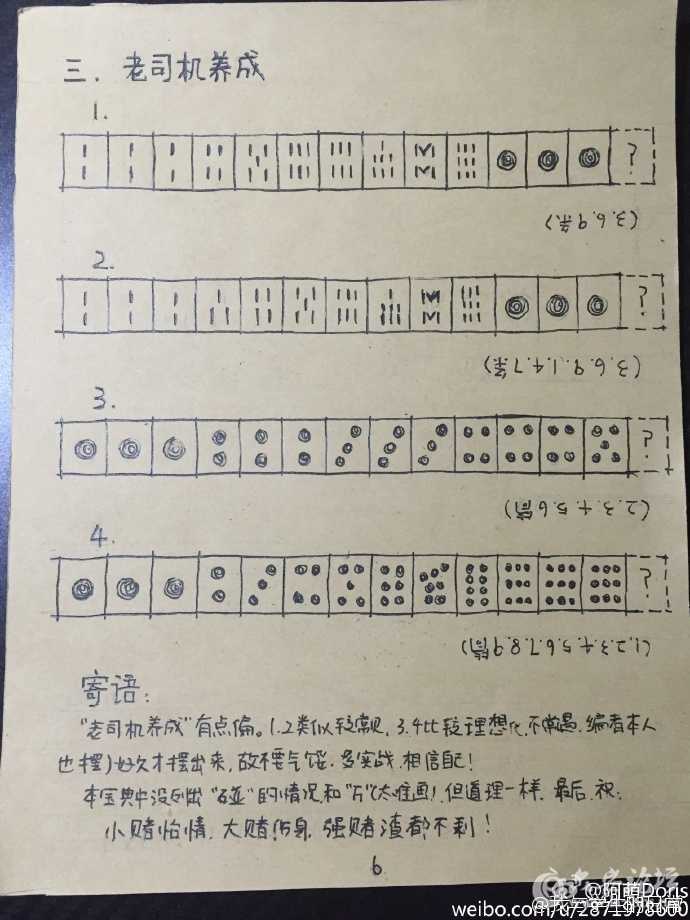 三. 老司机养成
1.
?
(3.6.9条)
2.
?
(3.6.9.1.4.7条)
3.
?
(2.3.4.5.6筒)
4.
?
(1.2.3.4.5.6.7.8.9筒)
寄语:
"老司机养成"有点偏。1.2类似较常见, 3.4比较理想化,不常遇. 编者本人
也摆了好久才摆出来, 故不要气馁. 多实战. 相信自己!
本宝典中没列出"碰"的情况和"万"(太难画)但道理一样. 最后. 祝:
小赌怡情, 大赌伤身, 强赌渣都不剩!
6
@阿萌Doris
weibo.com/u/2871978600